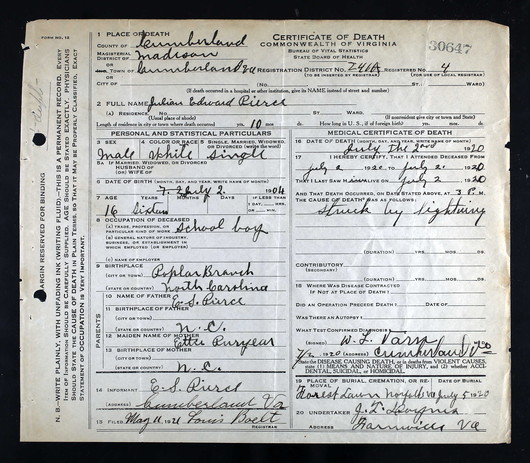 FORM NO. 12
CERTIFICATE OF DEATH
COMMONWEALTH OF VIRGINIA
BUREAU OF VITAL STATISTICS
STATE BOARD OF HEALTH
30647
1 PLACE OF DEATH
COUNTY OF Cumberland
MAGISTERIAL DISTRICT OF Madison
TOWN OF Cumberland Va
REGISTRATION DISTRICT NO. 241A REGISTERED NO. 4
(TO BE INSERTED BY REGISTRAR) (FOR USE OF LOCAL REGISTRAR)
CITY OF (No. St. WARD)
(If death occurred in a hospital or other institution, give its NAME instead of street and number)
2 FULL NAME Julian Edward Pierce
(A) RESIDENCE No. St. WARD.
(Usual place of abode) (If nonresident give city or town and State)
Length of residence in city or town where death occurred yrs. 10 mos. ds. How long in U. S., if of foreign birth? yrs. mos. ds.
PERSONAL AND STATISTICAL PARTICULARS
3 SEX 4 COLOR OR RACE 5 SINGLE, MARRIED, WIDOWED, OR DIVORCED
Male White Single
5A IF MARRIED, WIDOWED, OR DIVORCED
HUSBAND OF
(OR) WIFE OF
6 DATE OF BIRTH (MONTH, DAY AND YEAR)
2 1904
7 AGE YEARS MONTHS DAYS IF LESS THAN
16 Sixteen
8 OCCUPATION OF DECEASED
(A) TRADE, PROFESSION, OR PARTICULAR KIND OF WORK School boy
(B) GENERAL NATURE OF INDUSTRY, BUSINESS, OR ESTABLISHMENT IN WHICH EMPLOYED (OR EMPLOYER)
(C) NAME OF EMPLOYER
9 BIRTHPLACE
(CITY OR TOWN) Poplar Branch
(STATE OR COUNTRY) North Carolina
PARENTS
10 NAME OF FATHER
E S Pierce
11 BIRTHPLACE OF FATHER
(CITY OR TOWN)
(STATE OR COUNTRY) N. C.
12 MAIDEN NAME OF MOTHER
Ettie Puryear
13 BIRTHPLACE OF MOTHER
(CITY OR TOWN)
(STATE OR COUNTRY) N. C.
14 INFORMANT E S Pierce
(ADDRESS) Cumberland Va
15 FILED May 11, 1921 Louis Boelt
REGISTRAR
MEDICAL CERTIFICATE OF DEATH
16 DATE OF DEATH (MONTH, DAY AND YEAR)
July the 2nd 1920
17 I HEREBY CERTIFY, THAT I ATTENDED DECEASED FROM
July 2 1920, TO July 2 1920
THAT I LAST SAW HIM ALIVE ON July 2 1920
AND THAT DEATH OCCURRED, ON DATE STATED ABOVE, AT 3 P.M.
THE CAUSE OF DEATH WAS AS FOLLOWS:
Struck by lightning
(DURATION) YRS. MOS. DS.
CONTRIBUTORY
(SECONDARY)
(DURATION) YRS. MOS. DS.
18 WHERE WAS DISEASE CONTRACTED
IF NOT AT PLACE OF DEATH?
DID AN OPERATION PRECEDE DEATH? DATE OF
WAS THERE AN AUTOPSY?
WHAT TEST CONFIRMED DIAGNOSIS?
(SIGNED) W. L.
7/2 1920 (ADDRESS) Cumberland Va
State the DISEASE CAUSING DEATH, or in deaths from VIOLENT CAUSES, state (1) MEANS AND NATURE OF INJURY, and (2) WHETHER ACCIDENTAL, SUICIDAL, or HOMICIDAL.
19 PLACE OF BURIAL, CREMATION, OR REMOVAL DATE OF BURIAL
Forest Lawn Norfolk Va July 5 1920
20 UNDERTAKER J. T.
ADDRESS Farmville Va
MARGIN RESERVED FOR BINDING
N. B.—WRITE PLAINLY, WITH UNFADING INK (WRITING FLUID)—THIS IS A PERMANENT RECORD. EVERY
ITEM OF INFORMATION SHOULD BE CAREFULLY SUPPLIED. AGE SHOULD BE STATED EXACTLY. PHYSICIANS
SHOULD STATE THE CAUSE OF DEATH IN PLAIN TERMS, SO THAT IT MAY BE PROPERLY CLASSIFIED. EXACT
STATEMENT OF OCCUPATION IS VERY IMPORTANT.